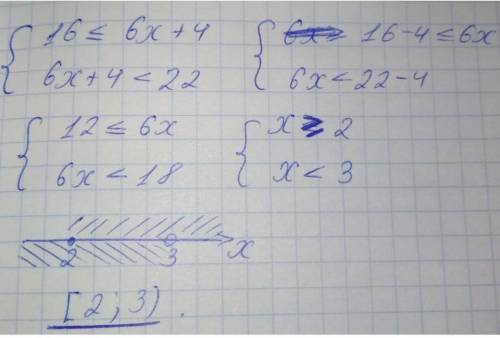 16 ≤ 6x + 4
6x + 4 < 22
16 - 4 ≤ 6x
6x < 22 - 4
12 ≤ 6x
6x < 18
x ≥ 2
x < 3
2 3 x
[2; 3).